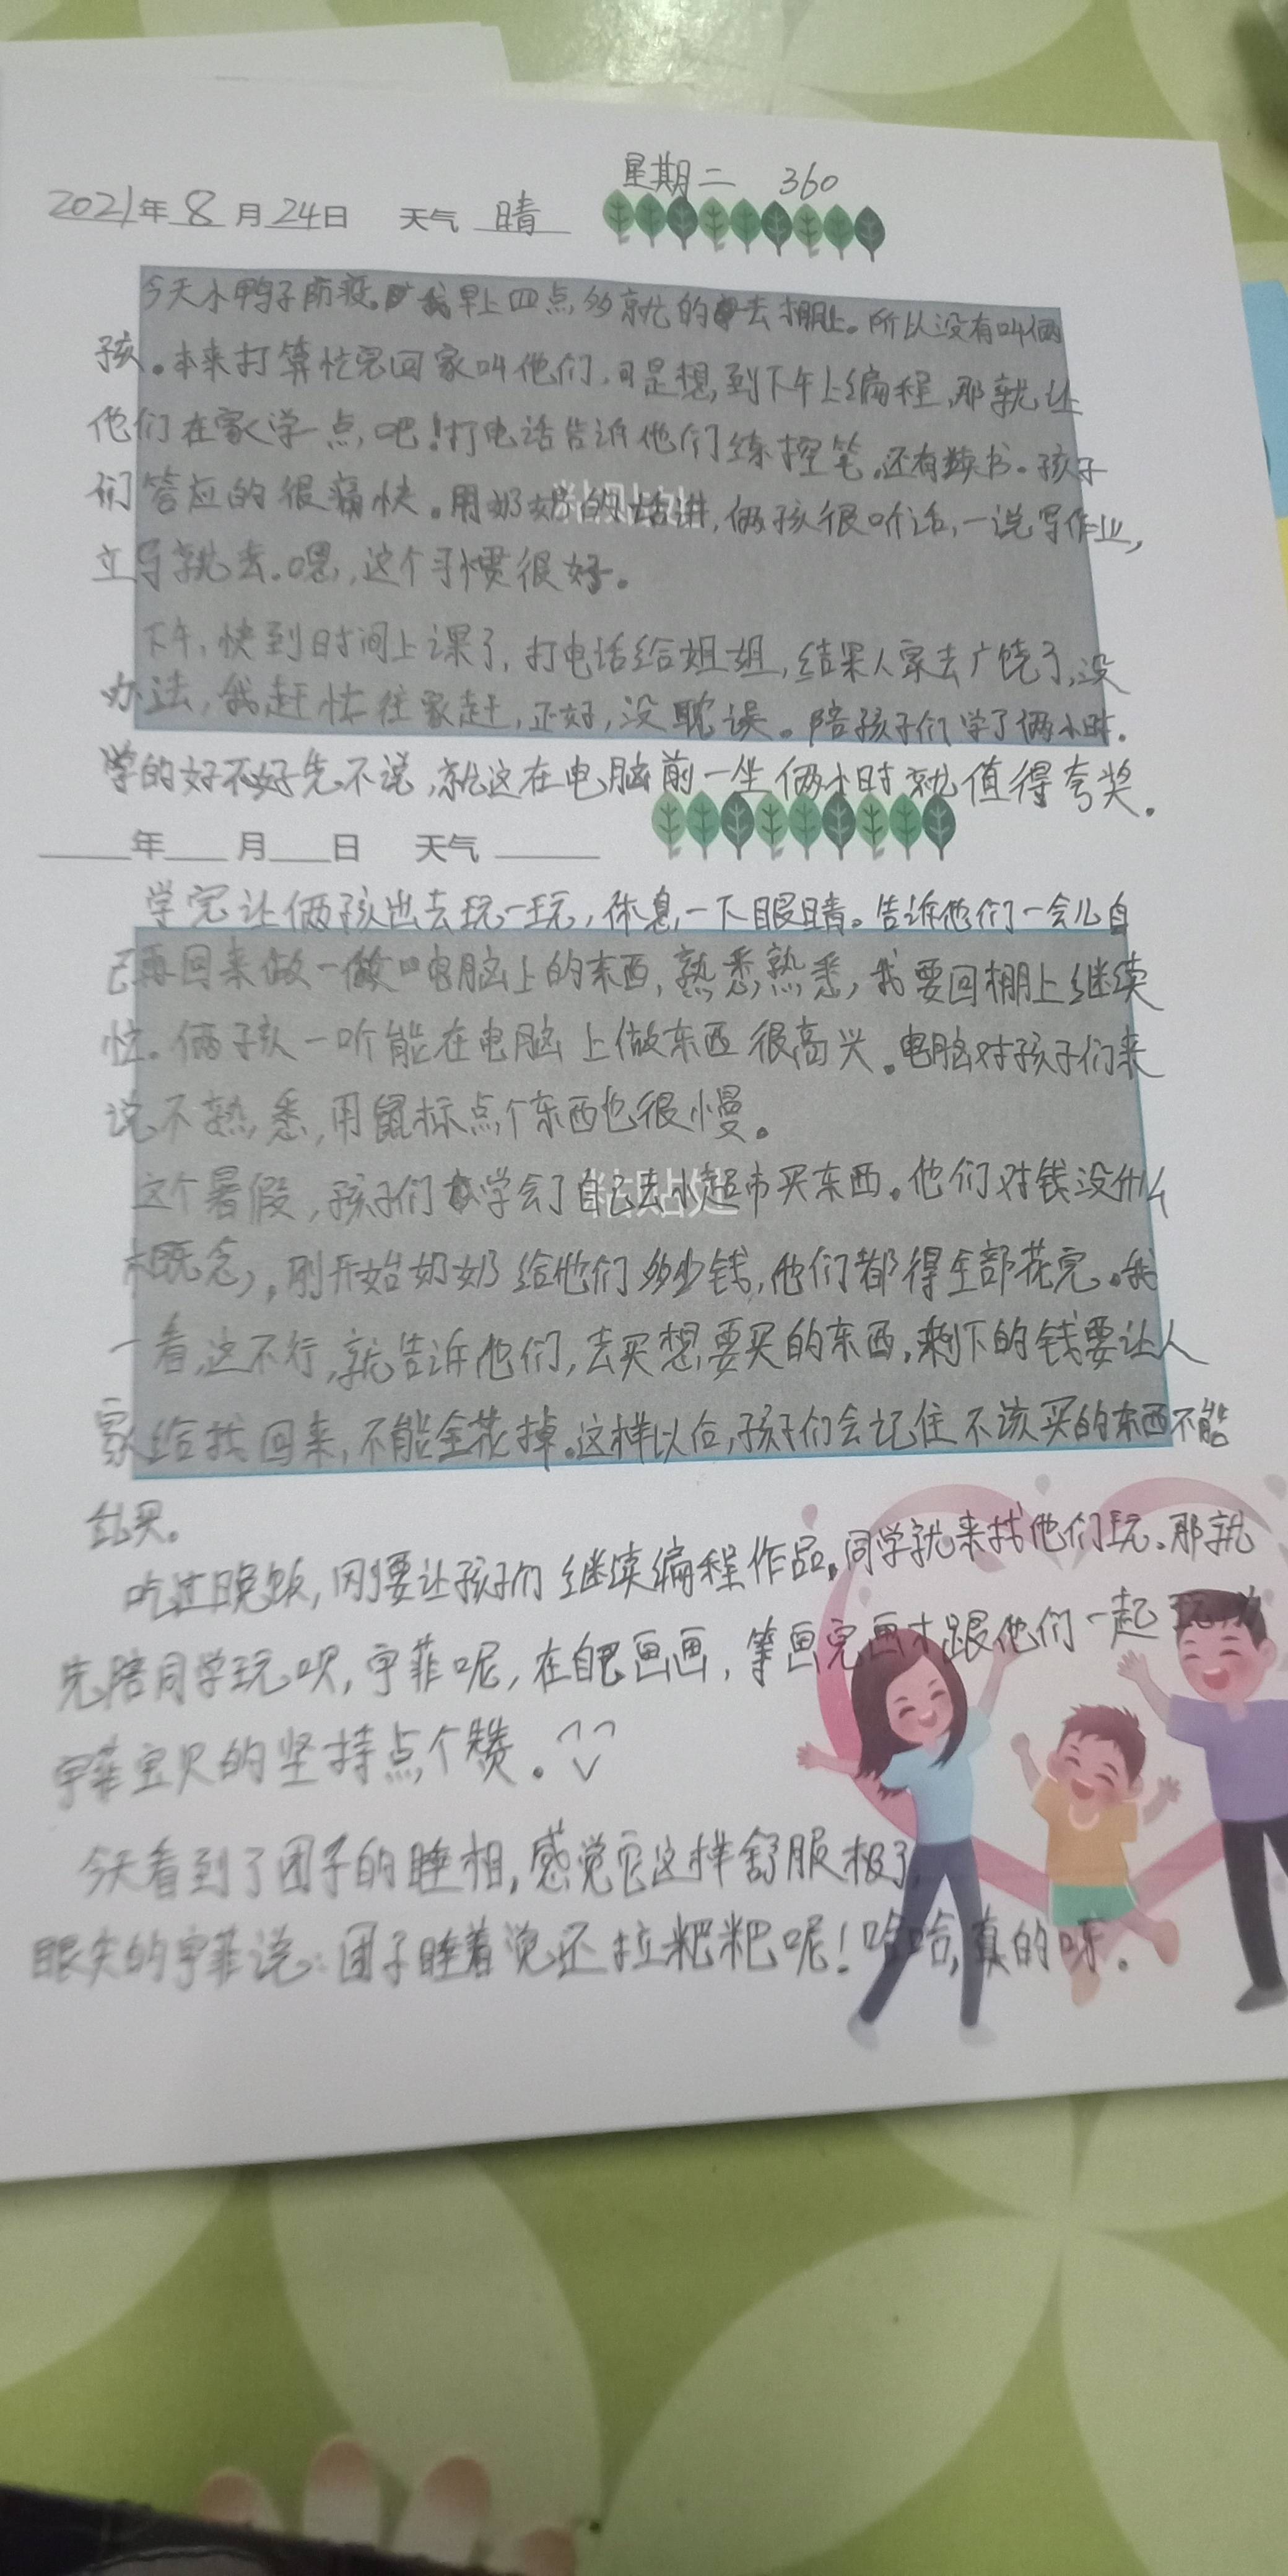 星期二 360
2021年 8 月 24日 天气 晴
今天小鸭子防疫。我早上四点多就的去棚上。所以没有叫俩
孩。本来打算忙完回家叫他们,可是想到下午上编程,那就让
他们在家学一点吧!打电话告诉他们练控笔,还有读书。孩子
们答应的很痛快。用奶奶的话讲,俩孩很听话,一说写作业,
粘贴处
立马就去。嗯,这个习惯很好。
下午,快到时间上课了,打电话给姐姐,结果人家去广饶了,没
办法,我赶忙往家赶,正好,没耽误。陪孩子们学了俩小时。
学的好不好先不说,就这在电脑前一坐俩小时就值得夸奖。
年 月 日 天气
学完让俩孩出去玩一玩,休息一下眼睛。告诉他们一会儿自
己再回来做一做电脑上的东西,熟悉熟悉,我要回棚上继续
忙。俩孩一听能在电脑上做东西很高兴。电脑对孩子们来
说不熟悉,用鼠标点个东西也很慢。
这个暑假,孩子们学会了自己去小超市买东西。他们对钱没什么
粘贴处
概念,刚开始奶奶给他们多少钱,他们都得全部花完。我
一看,这不行,就告诉他们,去买想要买的东西,剩下的钱要让人
家给找回来,不能全花掉。这样以后,孩子们会记住不该买的东西不能
乱买。
吃过晚饭,刚要让孩子们继续编程作品,同学就来找他们玩。那就
先陪同学玩呗,宇菲呢,在自己画画,等画完画才跟他们一起玩,为
宇菲宝贝的坚持点个赞。
今天看到了团子的睡相,感觉它这样舒服极了,
眼尖的宇菲说:团子睡着觉还拉粑粑呢!哈哈,真的呀。